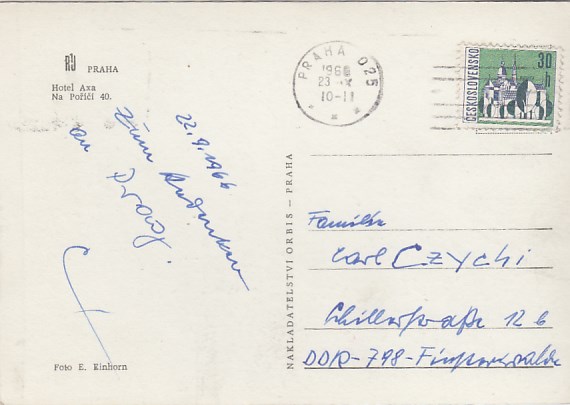 PRAHA
Hotel Axa
Na Poříčí 40.
22.9.1966
Zum Andenken
an Prag
Foto E. Kinhorn
NAKLADATELSTVÍ ORBIS – PRAHA
PRAHA 025
1966
23 IX
10-11
ČESKOSLOVENSKO
30 h
Familie
Carl Czychi
Schillerstraße 12 b
DDR-798-Finsterwalde